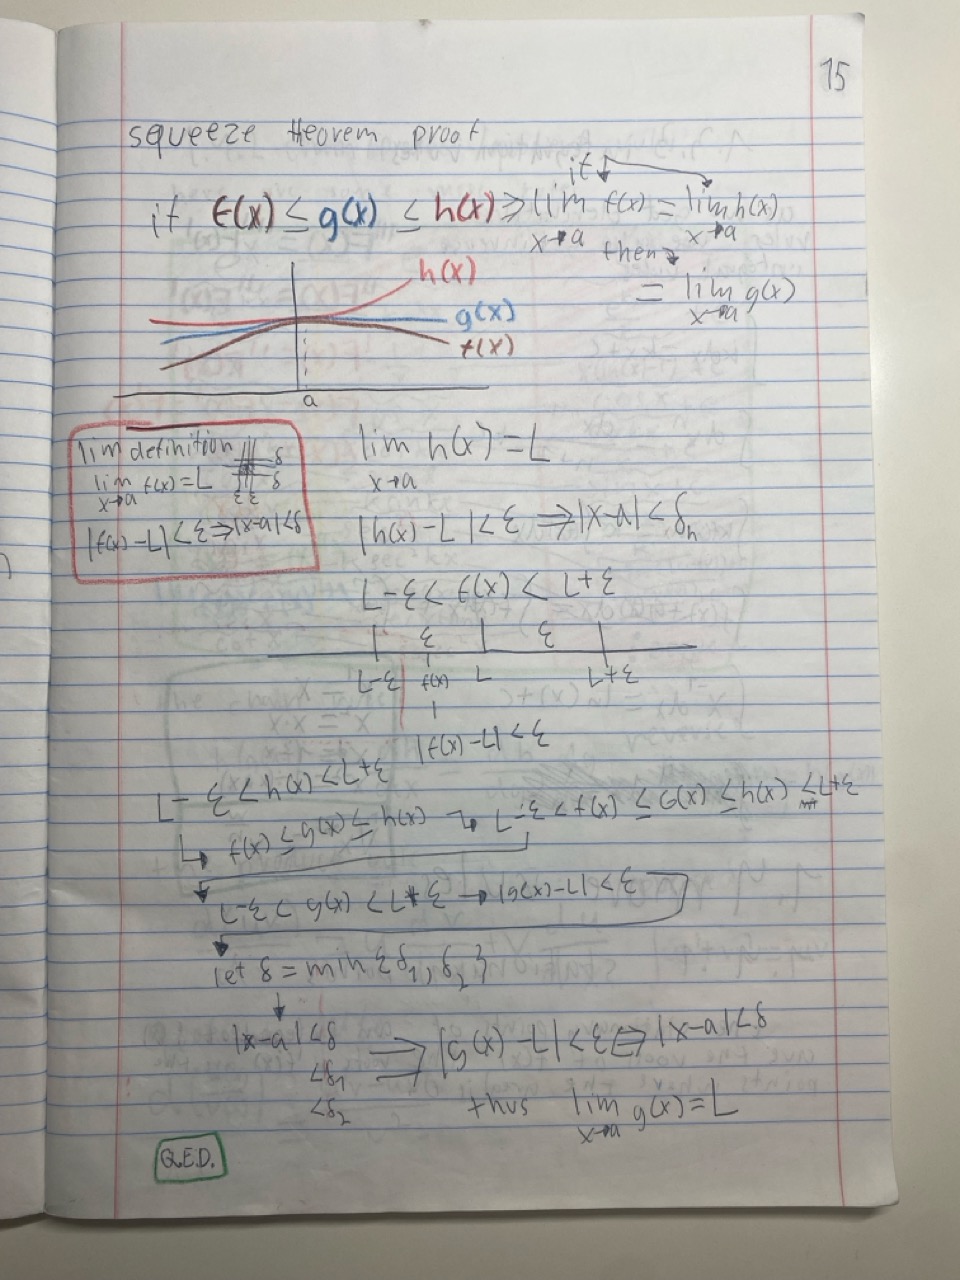 15
squeeze theorem proof
if f(x) ≤ g(x) ≤ h(x) ⇒ if lim x→a f(x) = lim x→a h(x)
then = lim x→a g(x)
h(x)
g(x)
f(x)
a
lim definition
lim x→a f(x) = L
|f(x) - L| < ε ⇐ |x-a| < δ
δ
δ
ε ε
lim x→a h(x) = L
|h(x) - L| < ε ⇐ |x-a| < δh
L-ε < f(x) < L+ε
ε ε
L-ε f(x) L L+ε
|f(x) - L| < ε
L - ε < h(x) < L+ε
f(x) ≤ g(x) ≤ h(x) → L-ε < f(x) ≤ g(x) ≤ h(x) < L+ε
L-ε < g(x) < L+ε → |g(x)-L| < ε
let δ = min{δ1, δ2}
|x-a| < δ ⇐ |g(x) - L| < ε ⇐ |x-a| < δ
<δ1
<δ2
thus lim x→a g(x) = L
Q.E.D.